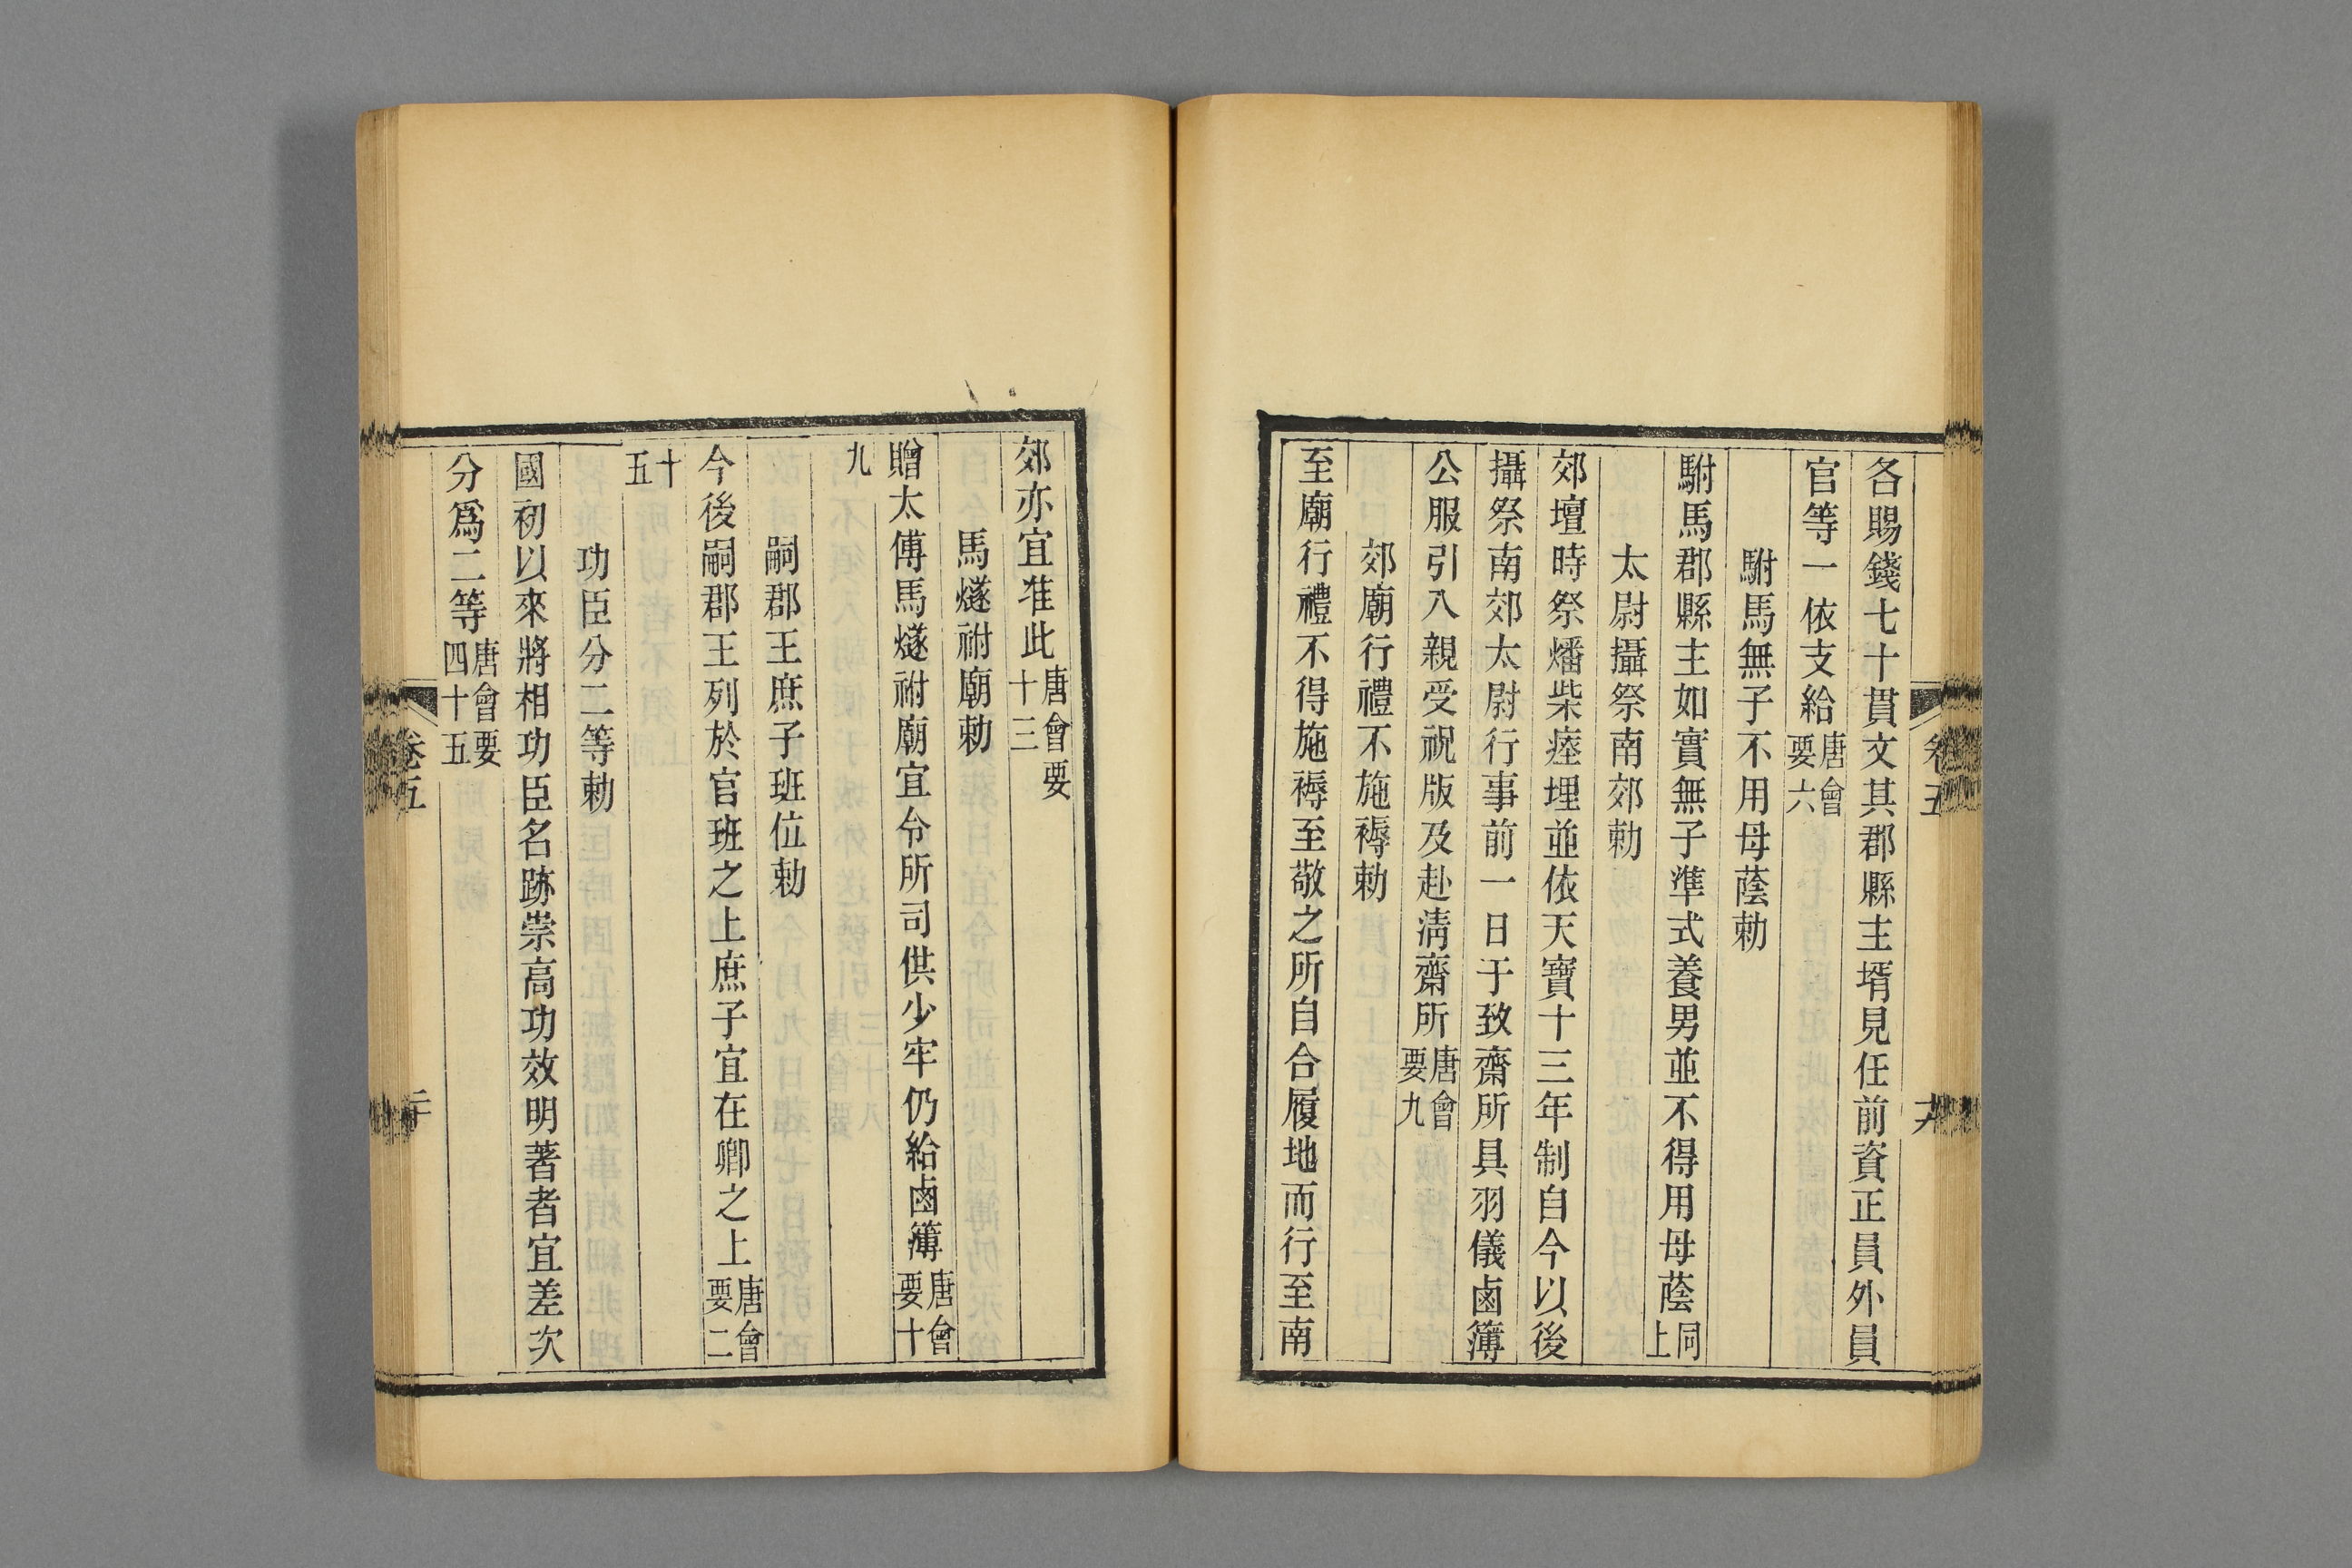 卷五
各賜錢七十貫文其郡縣主壻見任前資正員外員
官等一依支給唐會要六
駙馬無子不用母蔭勅
駙馬郡縣主如實無子準式養男並不得用母蔭同上
太尉攝祭南郊勅
郊壇時祭燔柴瘞埋並依天寶十三年制自今以後
攝祭南郊太尉行事前一日于致齋所具羽儀鹵簿
公服引入親受祝版及赴淸齋所唐會要九
郊廟行禮不施褥勅
至廟行禮不得施褥至敬之所自合履地而行至南
郊亦宜准此唐會要十三
馬燧祔廟勅
贈太傅馬燧祔廟宜令所司供少牢仍給鹵簿唐會要十
九
嗣郡王庶子班位勅
今後嗣郡王列於官班之上庶子宜在卿之上唐會要二
十五
功臣分二等勅
國初以來將相功臣名跡崇高功效明著者宜差次
分爲二等唐會要四十五
卷五